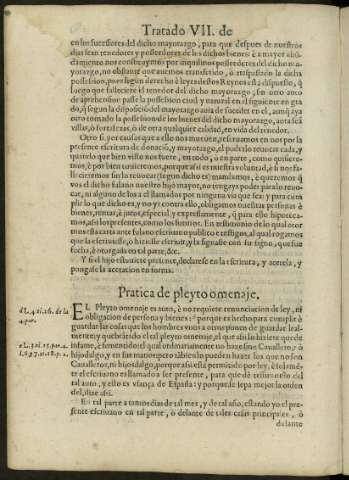 Tratado VII. de
en los sucessores del dicho mayorazgo, para que despues de nuestros
dias sean tenedores y posseedores de los dichos bienes: è a mayor abõ-
damiento nos constituymos por inquilinos posseedores del dicho ma-
yorazgo, no obstante que auemos transferido, ò traspassado la dicha
possession, pues segun derecho è leyes destos Reynos està dispuesto, q̃
luego que fallesciere el tenedor del dicho mayorazgo, sin otro auto
de aprehension passe la possession ciuil y natural en el siguiente en gra
do, q̃ segun la disposiciõ del mayorazgo aura de suceder en el, aunq̃ aya
otro tomado la possession de los bienes del dicho mayorazgo, aora seã
villas, ò fortalezas, ò de otra qualquier calidad, en vida del tenedor.
Otro si, por causas que a ello nos mueuen, restriamos en nos por la
presente escritura de donaciõ, y mayorazgo, el poderlo reuocar cada, y
quando que bien visto nos fuere, en todo, ò en parte, como quisiere-
mos, è por bien tuuieremos, porque assi es nuestra voluntad, è si nos fa-
llecieremos sin lo reuocar (segun dicho es) mandamos, è queremos q̃
vos el dicho fulano nuestro hijo mayor, no tengays poder para lo reuo-
car, ni alguno de los a el llamados por ninguna via que sea: y para cum
plir lo que dicho es, y no yr contra ello, obligamos nuestras personas è
bienes, rentas, è juros, especial, y expressamente, q̃ para ello hipoteca-
mos, assi los presentes, como los futuros. En testimonio de lo qual otor
mos esta carta ante fulano escriuano publico è testigos, al qual rogamos
que la escriuiesse, ò hiziesse escriuir, y la signasse con su signo, que fue
fecha, è otorgada en tal parte, &c.
Y si el hijo estuuiere presente, declarese en la escritura, y acetela, y
pongase la acetacion en forma.
Pratica de pleyto omenaje.
EL Pleyto omenaje es auto, è no requiere renunciacion de ley, ni
obligacion de persona y bienes: porque es hecho para cumplir è
guardar las cosas que los hombres vnos a otros ponen de guardar leal-
mente: y quebrãdo el el tal pleyto omenaje, el que assi lo hiziere que de
infame, è fementido: el qual ordinariamente no haze sino Cauallero, ò
hijodalgo, y en sus manos: pero tãbien lo pueden hazer los que no son
Caualleros, ni hijosdalgo, porque assi està permitido por ley, è se ha me-
ter el escriuano es llamado a ser presente, para que dè testimonio del
tal auto, y esto es vsança de España: y porque se sepa mejor la orden
del, dize assi.
En tal parte a tantos dias de tal mes, y de tal año, estando yo el pre-
sente escriuano en tal parte, ò delante de tales casas principales, ò
delante